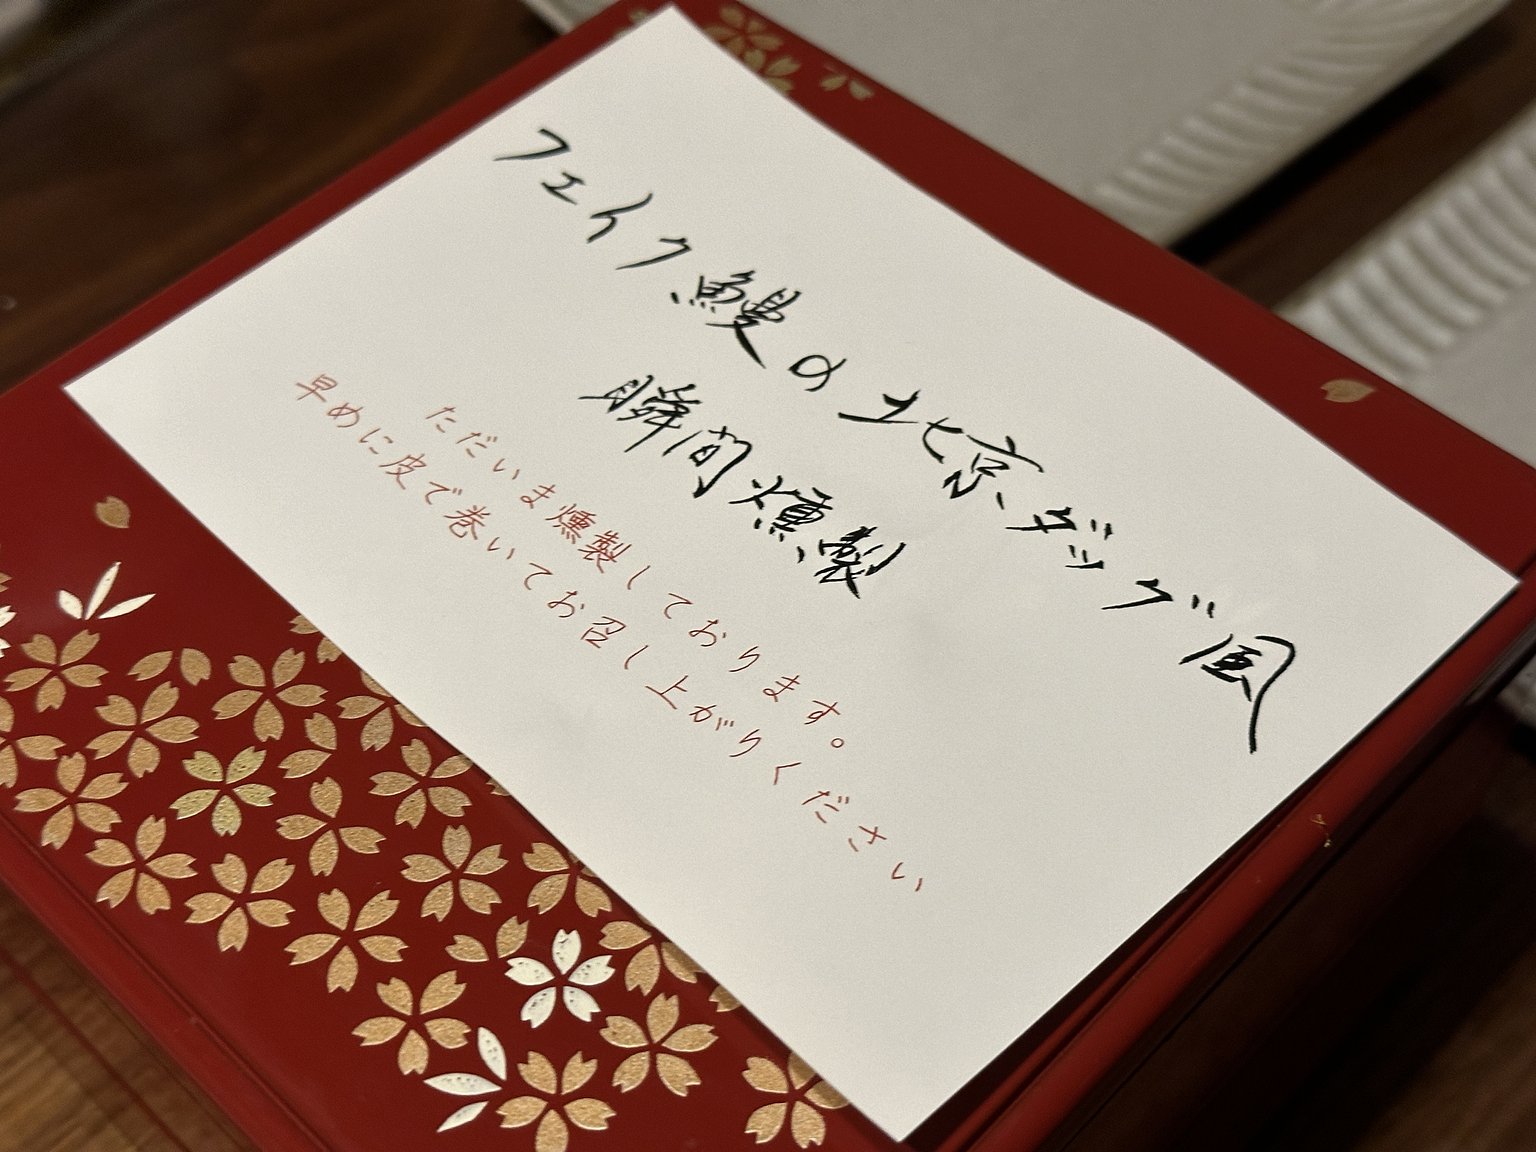 フェイク鰻の北京ダック風
瞬間燻製
ただいま燻製しております。
早めに皮で巻いてお召し上がりください